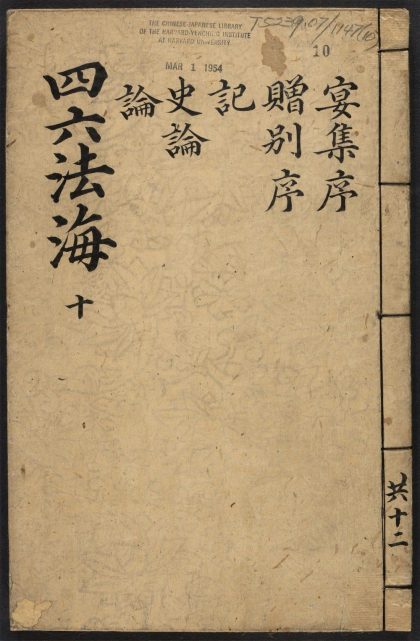 THE CHINESE-JAPANESE LIBRARY
OF THE HARVARD-YENCHING INSTITUTE
AT HARVARD UNIVERSITY
MAR 1 1954
10
宴集序
贈別序
記
史論
論
四六法海 十
共十二